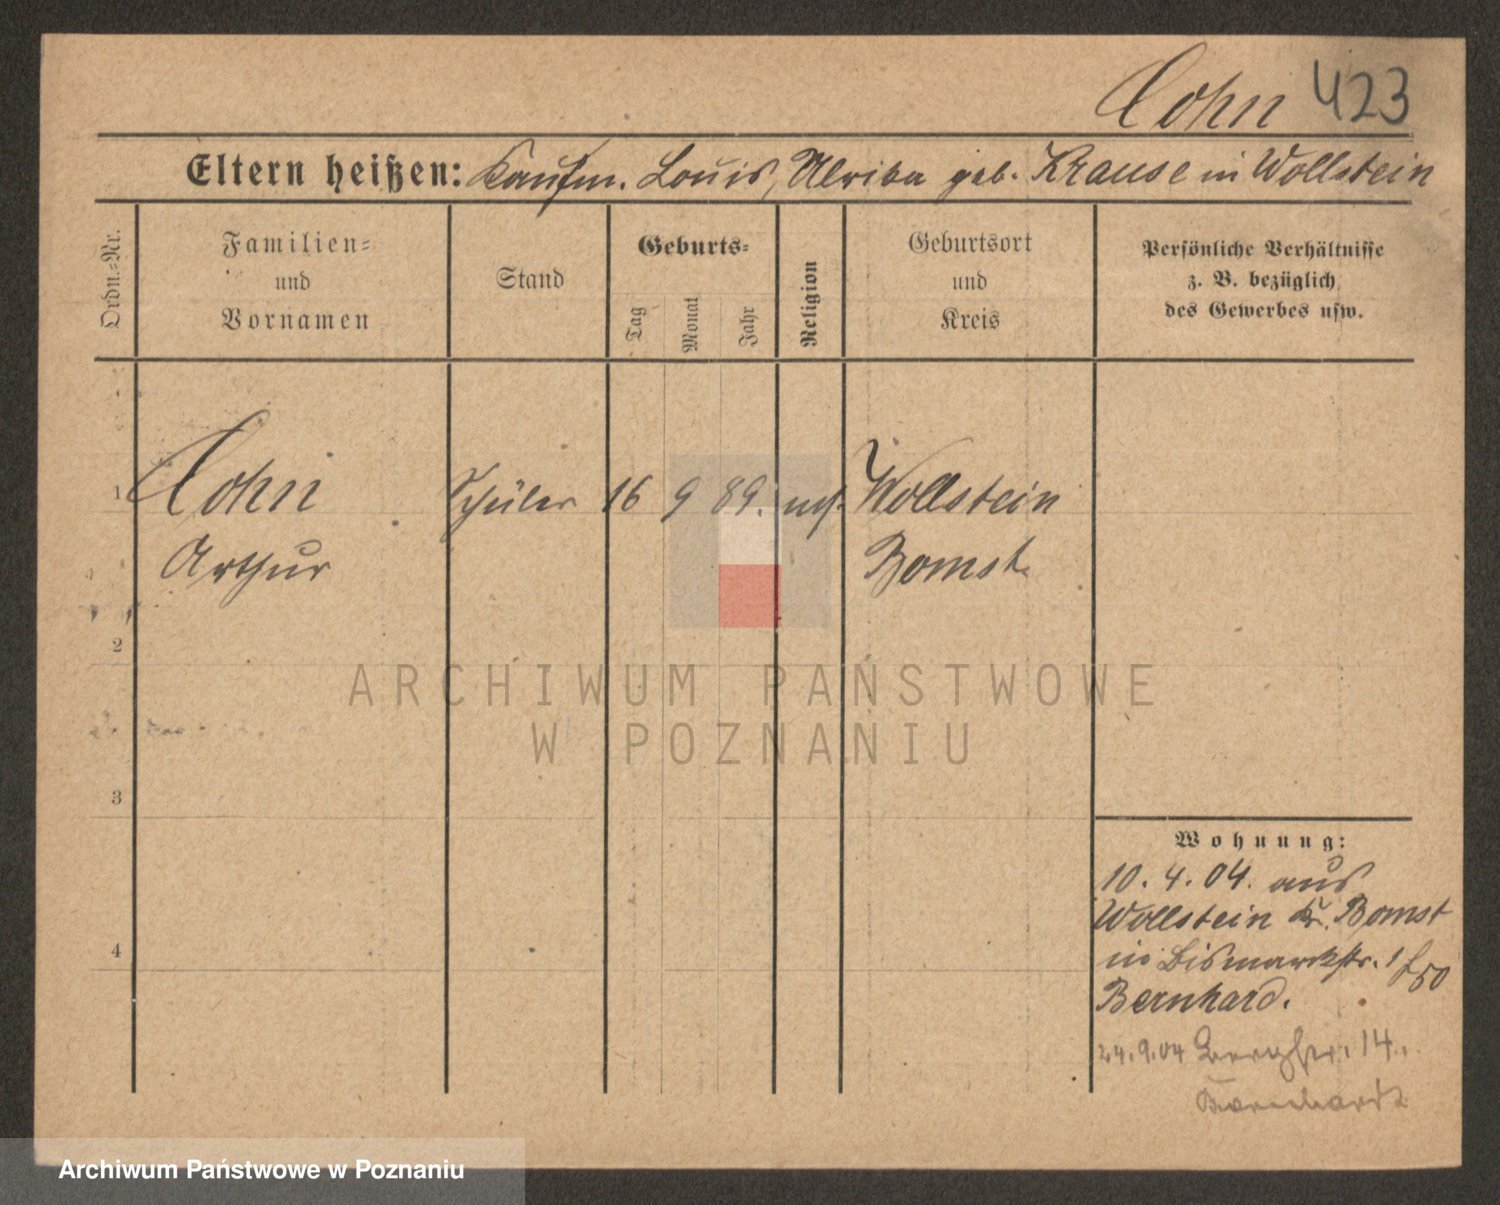 Cohn 423
Eltern heißen: Kaufm. Louis, Ulrika geb. Krause in Wollstein
Ordn.-Nr.
Familien-
und
Vornamen
Stand
Geburts-
Tag
Monat
Jahr
Religion
Geburtsort
und
Kreis
Persönliche Verhältnisse
z. B. bezüglich
des Gewerbes usw.
1 Cohn Schüler 16 9 89. mos. Wollstein
Arthur Bomst.
2
ARCHIWUM PAŃSTWOWE
W POZNANIU
3
Wohnung:
10. 4. 04. aus
Wollstein Kr. Bomst
in Bismarckstr. 1
Bernhard.
4
24.9.04 Bergstr. 14.
Bernhardt
Archiwum Państwowe w Poznaniu